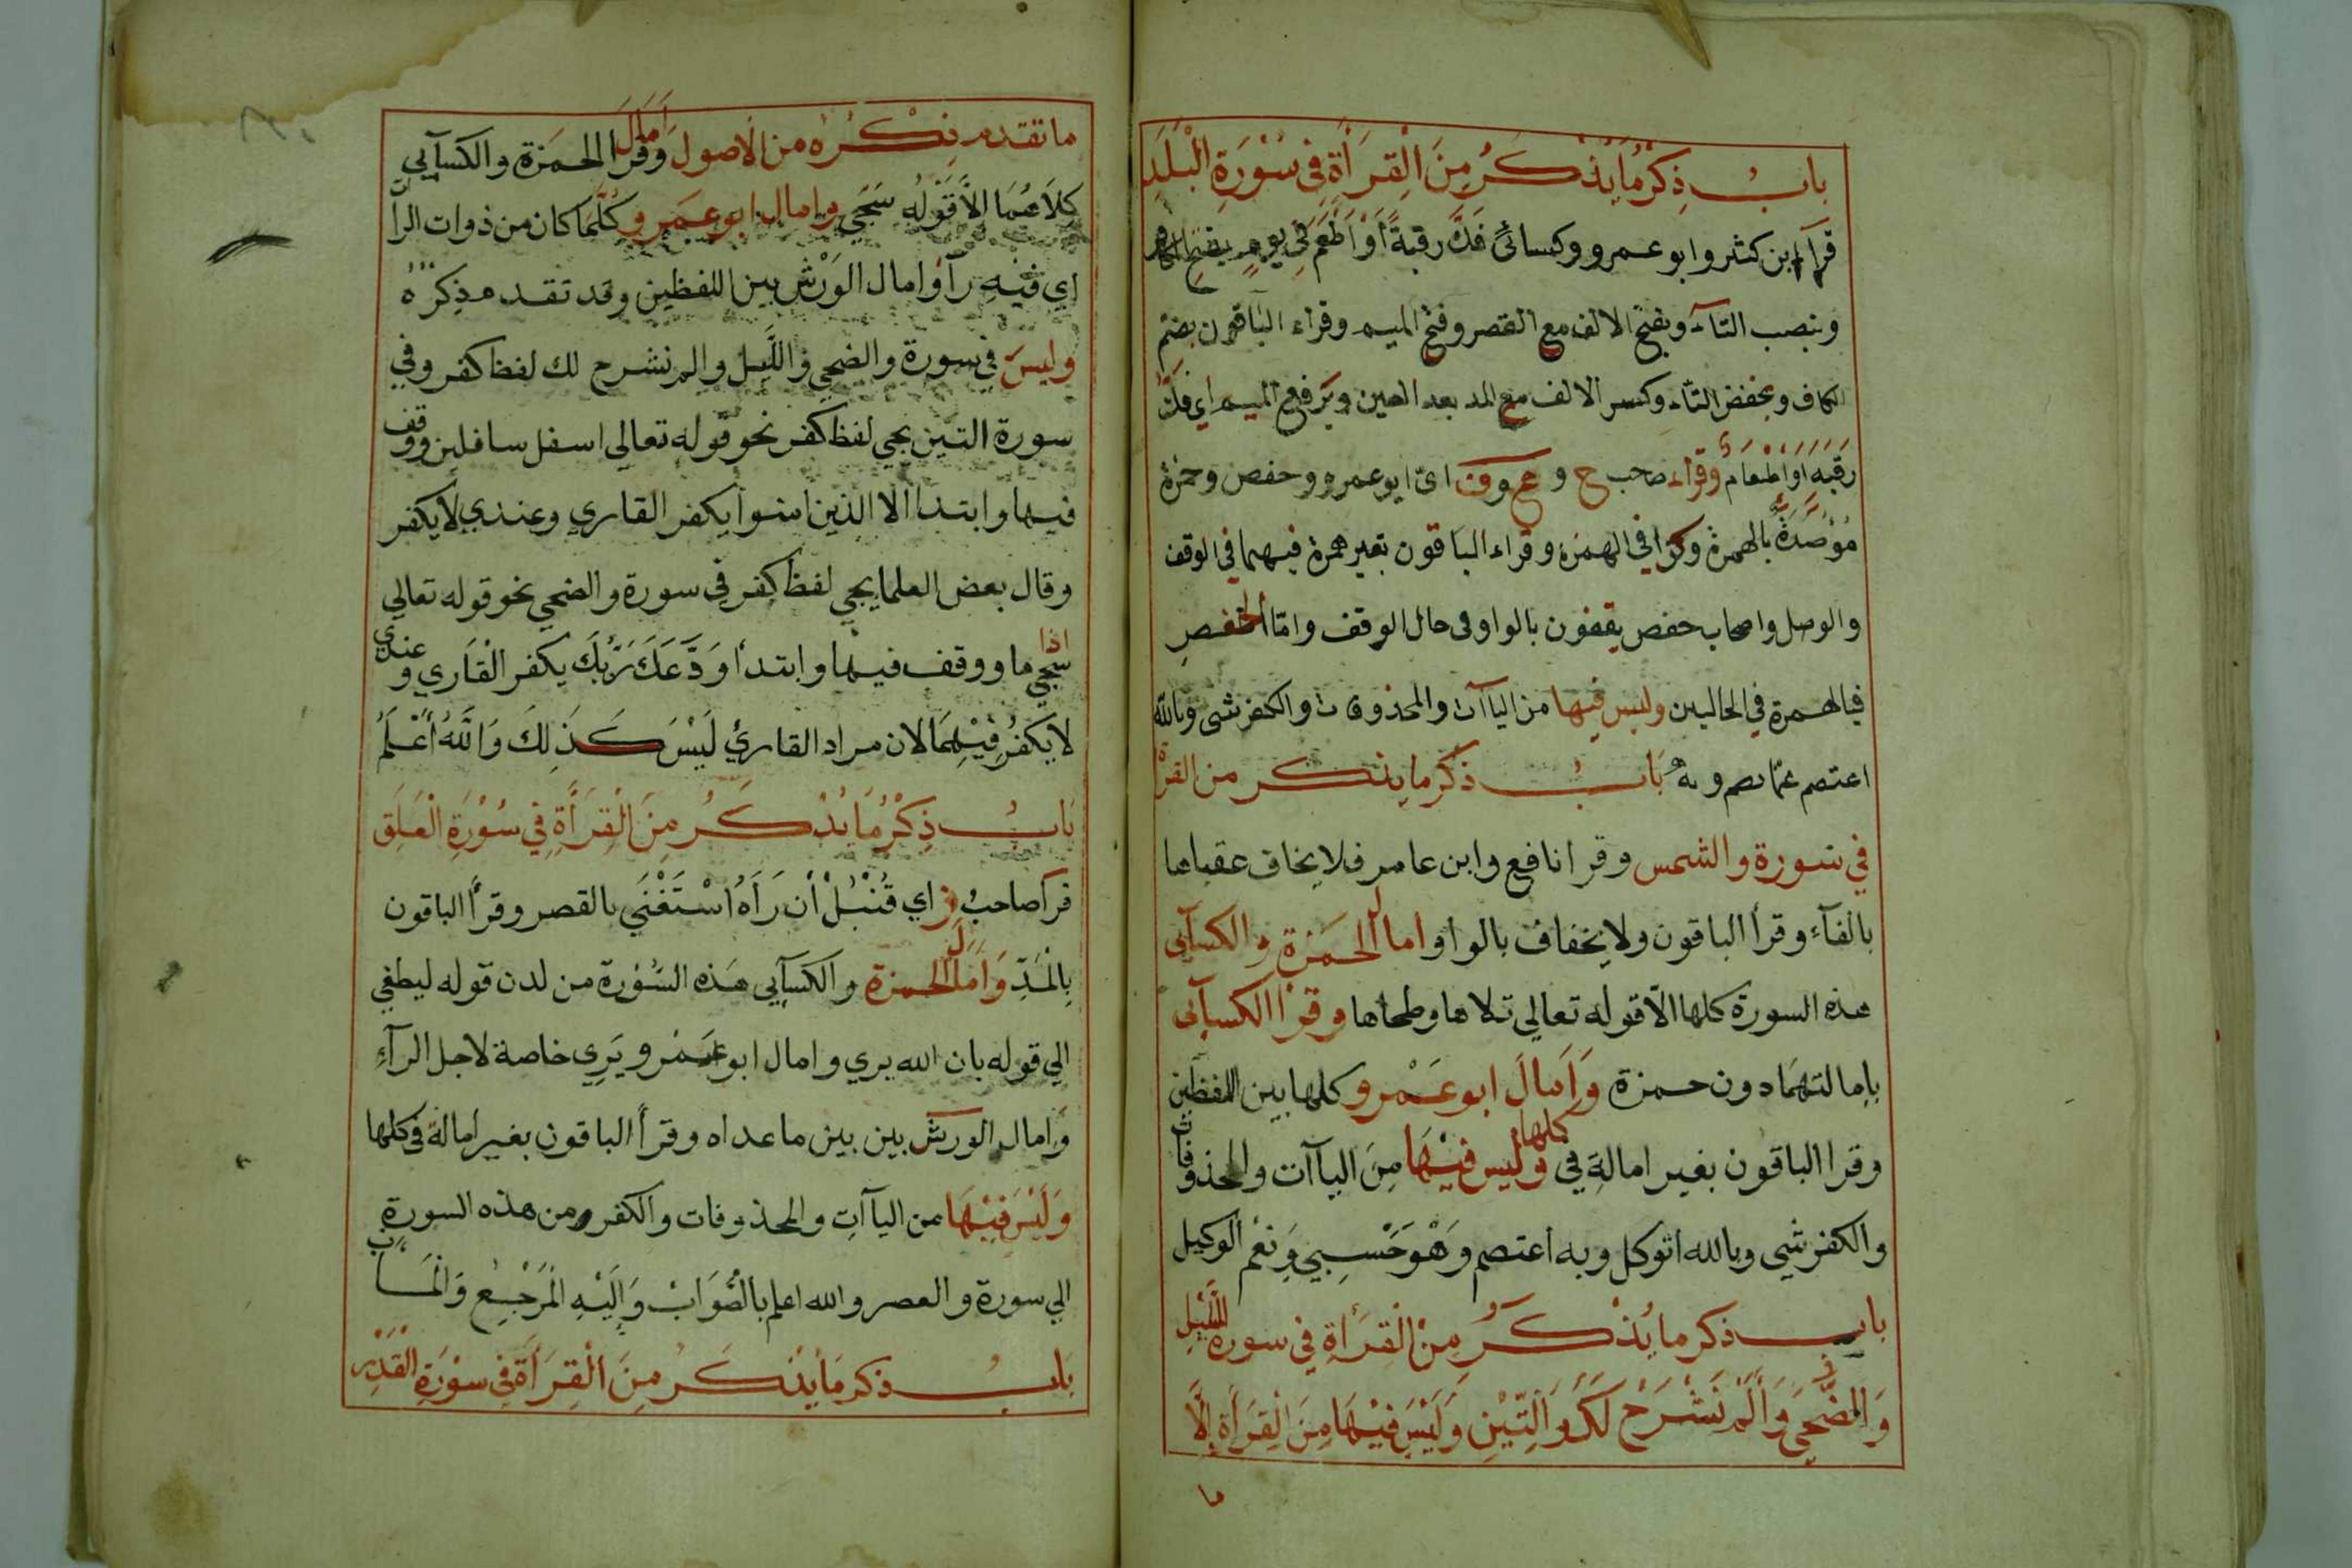 باب ذِكْرُ مَا يُذْكَرُ مِنَ الْقِرَأَةِ فِي سُوْرَةِ الْبَلَدِ
قرآء ابن كثر وابو عمرو وكسائى فَكَّ رقبةً أَوْ أَطْعَمَ فِي يومٍ بفتح الكاف
وبنصب التآء وبفتح الالف مع القصر وفتح الميم وقراء الباقون بضم
الكاف وبخفض التآء وكسر الالف مع المد بعد العين وبرفع الميم اى فكّ
رَقَبَةٍ اَوْ اِطْعَامٌ وقراء صاحب ح و ع وف اىّ ابو عمرو وحفص وحمزة
مُوْصَدَةٌ بالهمزة وكذا في الهمزة وقراء الباقون بغير همزة فيهما في الوقف
والوصل واصحاب حفص يقفون بالواو فى حال الوقف وامّا الحفص
فبالهمزة في الحالين وليس فيها من الياآت والمحذوفات والكفر شى وبالله
اعتصم عمّا يصم وبه بَابُ ذكر ما يذكر من القرأة
في سورة والشمس وقرا نافع وابن عامر فلا يخاف عقباها
بالفآء وقرأ الباقون ولا يخفاف بالواو وامال الحمزة والكسآيى
هذه السورة كلها الّا قوله تعالي تلاها وطحاها وقرأ الكسآيى
بإمالتهما دون حمزة وَاَمالَ ابو عَمْرو كلها بين اللفظين
وقرا الباقون بغير امالةٍ في كلها وليس فيْهَا مِنَ الياآت والمحذوفات
والكفر شي وبالله اتوكل وبه اعتصم وَهْوَ حَسِبِي وَنعْم الوكيل
باب ذكر ما يُذْكَرُ مِنْ الْقِرَأةِ فِي سورة اللَّيْلِ
وَالضُّحَى وَأَلَمْ نَشْرَحْ لَكَ وَالتِّيْنِ وَلَيْسَ فِيْهَا مِنَ الْقِرَأَةِ اِلَّا
ما
ما تقدم ذِكْرُهُ من الاصول وَأمال وقرا الحمزة والكسآيي
كلاهما الَّا قَوْلُه سَجَي وامال ابو عمرو كُلّمَا كان من ذوات الرآ
اي فيْهِ رآ وامال الوَرْش بين اللفظين وقد تقدم ذِكْرُهُ
وليسَ في سورة والضحي والليل والم نشرح لك لفظ كفر وفي
سورة التين يجي لفظ كفر نحو قوله تعالى اسفل سافلين ووقف
فيها وابتدا الا الذين امنوا يكفر القاري وعندي لا يكفر
وقال بعض العلما يجي لفظ كفر في سورة والضحي نحو قوله تعالي
اذا سجي ما ووقف فيها وابتدأ وَدَّعَكَ رَبُّكَ يكفر الْقَاري وعندي
لا يَكْفُرُ فِيْهِمَا لان مراد القارئ لَيْسَ كَذَلِكَ وَاللَّهُ أَعْلَمُ
بَابُ ذِكْرُ مَا يُذْكَرُ مِنَ الْقِرَأَةِ فِي سُوْرَةِ الْعَلَقِ
قرآ صاحبُ ز اي قُنْبُلْ أن رَأَهُ اسْتَغْنَي بالقصر وقرأ الباقون
بِالْمَدِّ وَاَمَالَ الحمزة والكسآيي هَذه السُّوْرة من لدن قوله ليطغي
الي قوله بان الله يري وامال ابو عَمْرو يَرِي خاصة لاجل الرآءِ
وَامال الورش بين بين ما عداه وقرأ الباقون بغير امالة في كلها
وَلَيْسَ فِيْهَا من الياآتِ والمحذوفات والكفر ومن هذه السورة
الي سورة والعصر والله اعلم بالصَّوَابْ وَاِلَيْهِ الْمَرْجِعُ وَالْمَآب
بَابُ ذكر مَا يُذْكَرُ مِنَ الْقِرَأَةِ فِي سوْرَةِ الْقَدْرِ